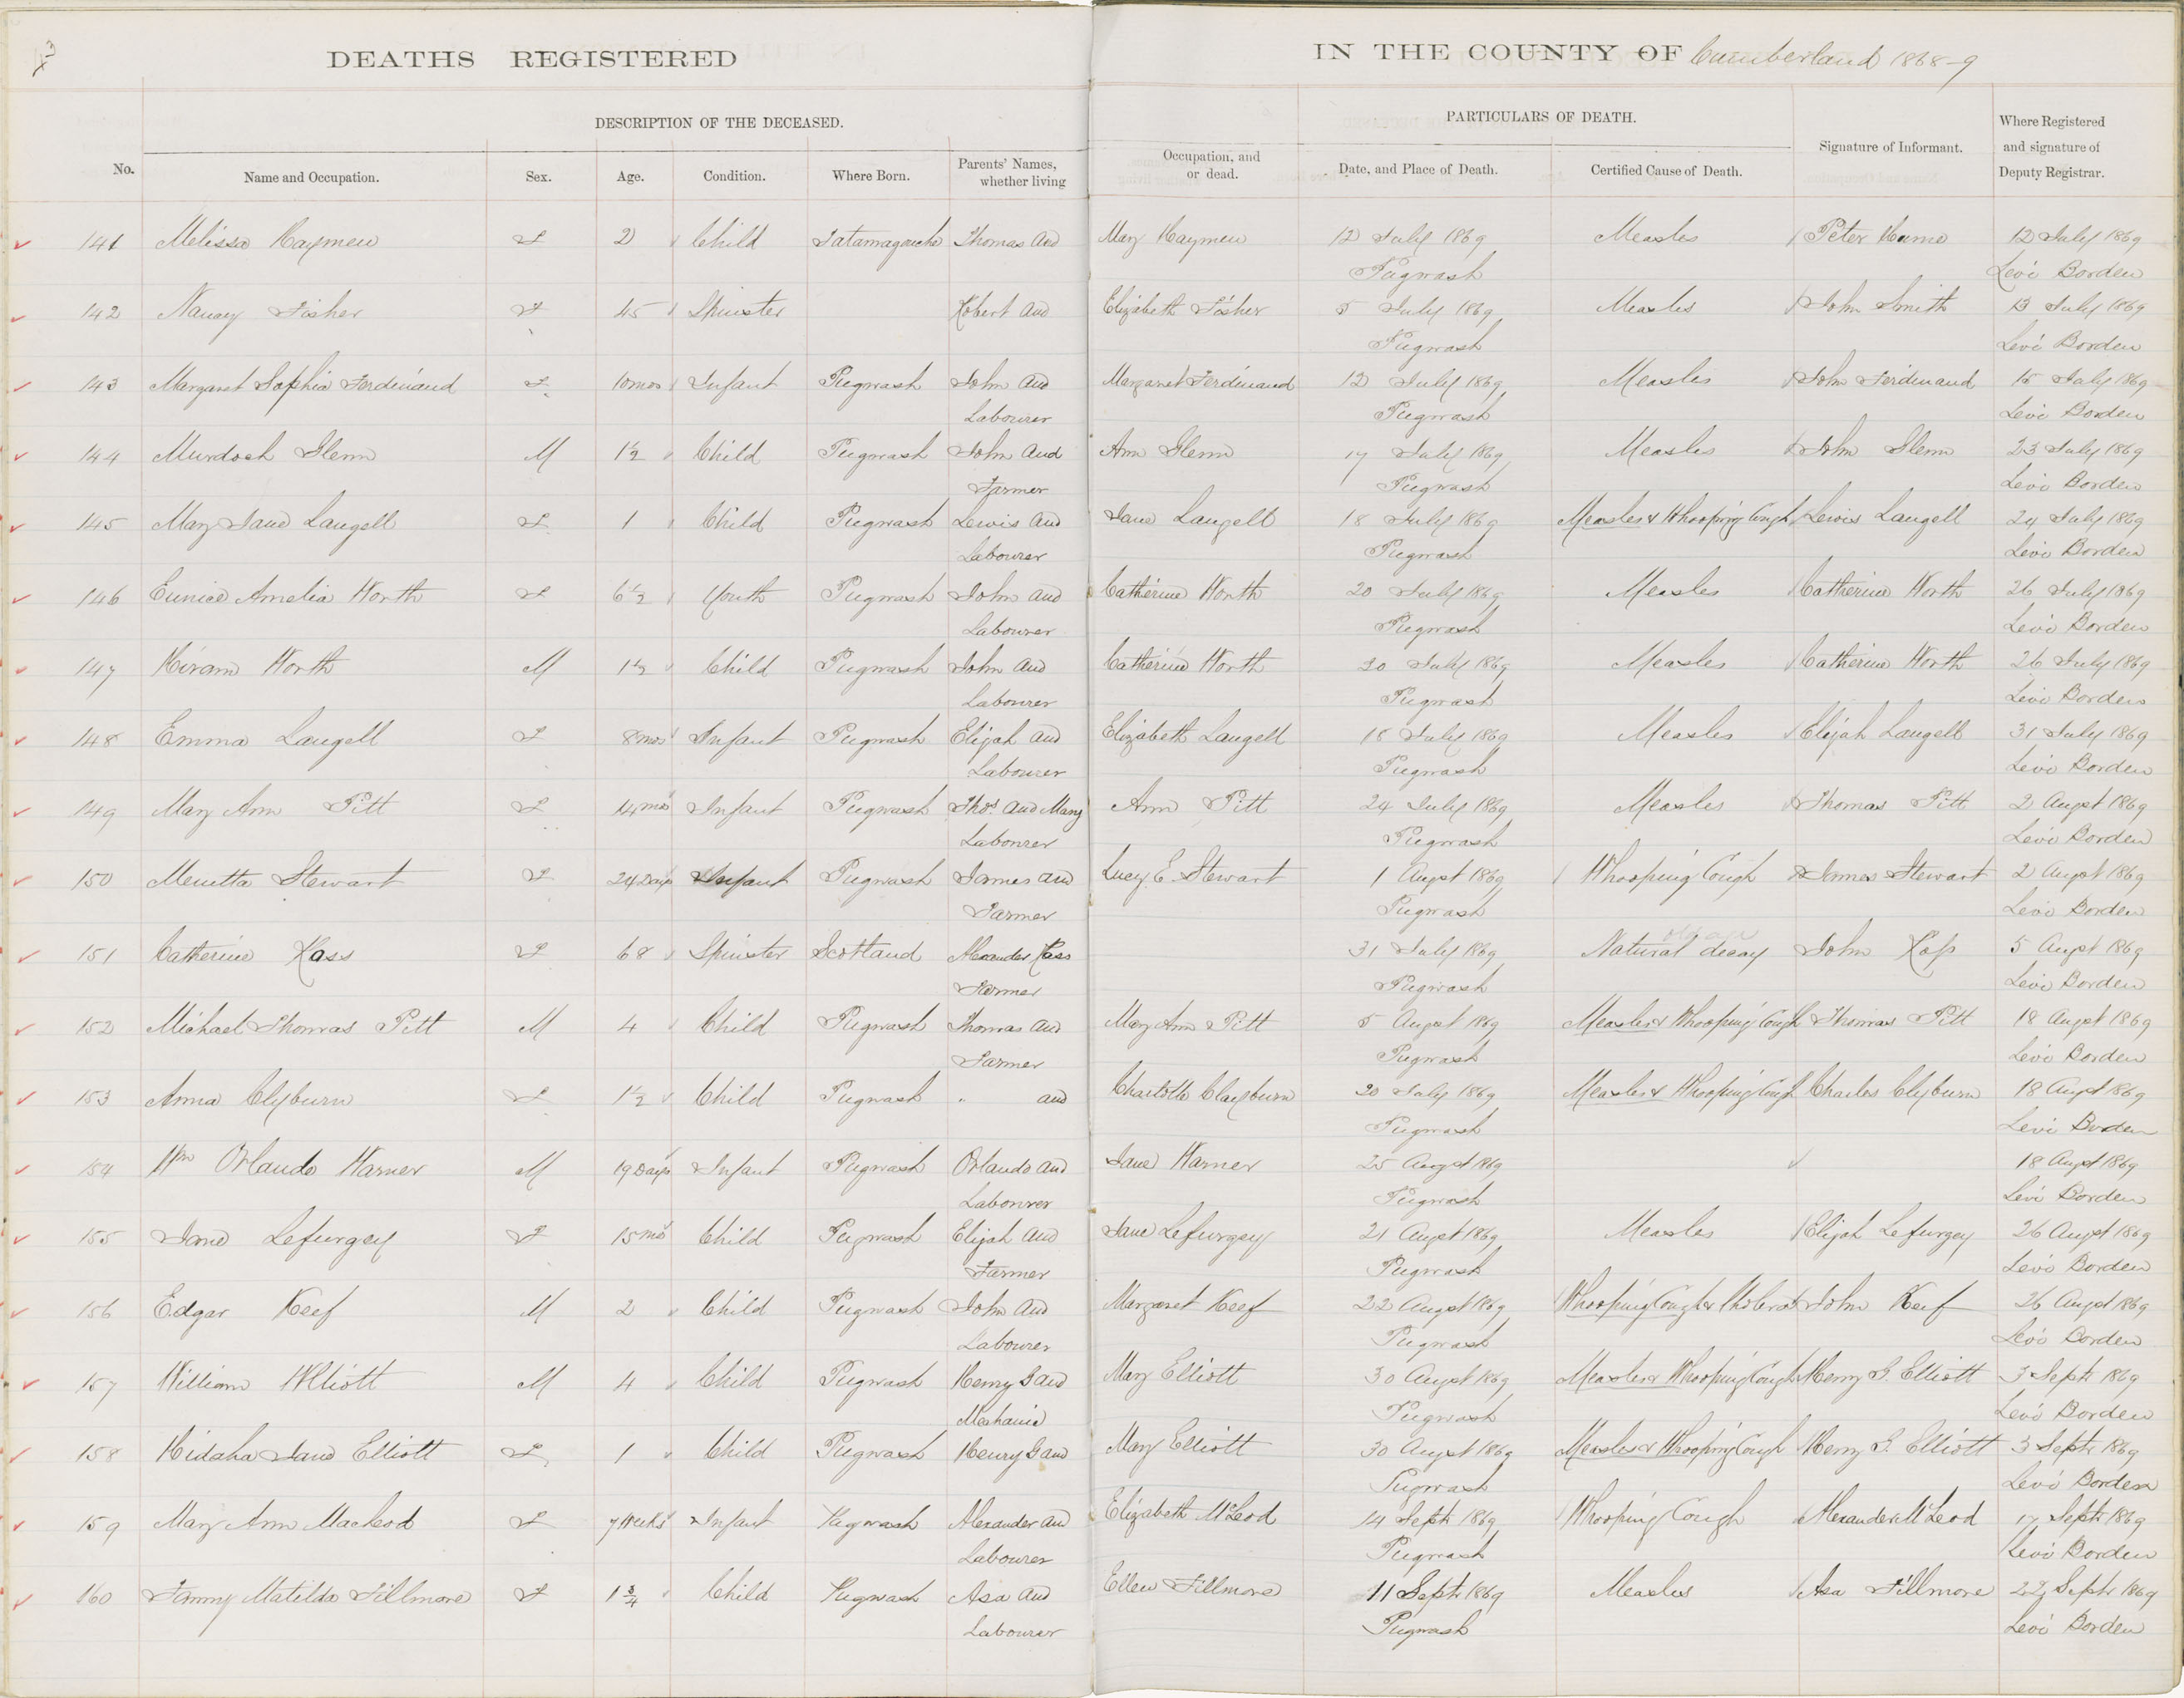 DEATHS REGISTERED IN THE COUNTY OF Cumberland 1868-9
DESCRIPTION OF THE DECEASED. PARTICULARS OF DEATH.
No. Name and Occupation. Sex. Age. Condition. Where Born. Parents' Names, whether living Occupation, and or dead. Date, and Place of Death. Certified Cause of Death. Signature of Informant. Where Registered and signature of Deputy Registrar.
141 Melissa Haymen F 2 Child Tatamagouche Thomas and Mary Haymen 12 July 1869 Measles Peter Hume 12 July 1869
Pugwash Levi Borden
142 Nancy Fisher F 45 Spinster Robert and Elizabeth Fisher 5 July 1869 Measles John Smith 13 July 1869
Pugwash Levi Borden
143 Margaret Sophia Ferdinand F 10 mos Infant Pugwash John and Margaret Ferdinand 12 July 1869 Measles John Ferdinand 15 July 1869
Labourer Pugwash Levi Borden
144 Murdoch Glenn M 1½ Child Pugwash John and Ann Glenn 17 July 1869 Measles John Glenn 23 July 1869
Farmer Pugwash Levi Borden
145 Mary Jane Langell F 1 Child Pugwash Lewis and Jane Langell 18 July 1869 Measles & Whooping Cough Lewis Langell 24 July 1869
Labourer Pugwash Levi Borden
146 Eunice Amelia Worth F 6½ Youth Pugwash John and Catherine Worth 20 July 1869 Measles Catherine Worth 26 July 1869
Labourer Pugwash Levi Borden
147 Hiram Worth M 1½ Child Pugwash John and Catherine Worth 20 July 1869 Measles Catherine Worth 26 July 1869
Labourer Pugwash Levi Borden
148 Emma Langell F 8 mos Infant Pugwash Elijah and Elizabeth Langell 18 July 1869 Measles Elijah Langell 31 July 1869
Labourer Pugwash Levi Borden
149 Mary Ann Pitt F 14 mos Infant Pugwash Thos. and Mary Ann Pitt 24 July 1869 Measles Thomas Pitt 2 Augst 1869
Labourer Pugwash Levi Borden
150 Stewart F 24 Days Infant Pugwash James and Lucy E. Stewart 1 Augst 1869 Whooping Cough James Stewart 2 Augst 1869
Farmer Pugwash Levi Borden
151 Catherine Ross F 68 Spinster Scotland Alexander Ross 31 July 1869 Natural decay John Ross 5 Augst 1869
Farmer Pugwash Levi Borden
152 Michael Thomas Pitt M 4 Child Pugwash Thomas and Mary Ann Pitt 5 Augst 1869 Measles & Whooping Cough Thomas Pitt 18 Augst 1869
Farmer Pugwash Levi Borden
153 Anna Clyburn F 1½ Child Pugwash " and Charlotte Clayburn 20 July 1869 Measles & Whooping Cough Charles Clyburn 18 Augst 1869
Pugwash Levi Borden
154 Wm Orlando Warner M 19 Days Infant Pugwash Orlando and Jane Warner 25 Augst 1869 18 Augst 1869
Labourer Pugwash Levi Borden
155 Jane Lefurgey F 15 mos Child Pugwash Elijah and Jane Lefurgey 21 Augst 1869 Measles Elijah Lefurgey 26 Augst 1869
Farmer Pugwash Levi Borden
156 Edgar Keef M 2 Child Pugwash John and Margaret Keef 22 Augst 1869 Whooping Cough & Cholera John Keef 26 Augst 1869
Labourer Pugwash Levi Borden
157 William Elliott M 4 Child Pugwash Henry G and Mary Elliott 30 Augst 1869 Measles & Whooping Cough Henry G. Elliott 3 Septr 1869
Mechanic Pugwash Levi Borden
158 Hidaha Jane Elliott F 1 Child Pugwash Henry G and Mary Elliott 30 Augst 1869 Measles & Whooping Cough Henry G. Elliott 3 Septr 1869
Pugwash Levi Borden
159 Mary Ann MacLeod F 7 Weeks Infant Pugwash Alexander and Elizabeth McLeod 14 Septr 1869 Whooping Cough Alexander McLeod 17 Septr 1869
Labourer Pugwash Levi Borden
160 Fanny Matilda Fillmore F 1¾ Child Pugwash Asa and Ellen Fillmore 11 Septr 1869 Measles Asa Fillmore 22 Septr 1869
Labourer Pugwash Levi Borden